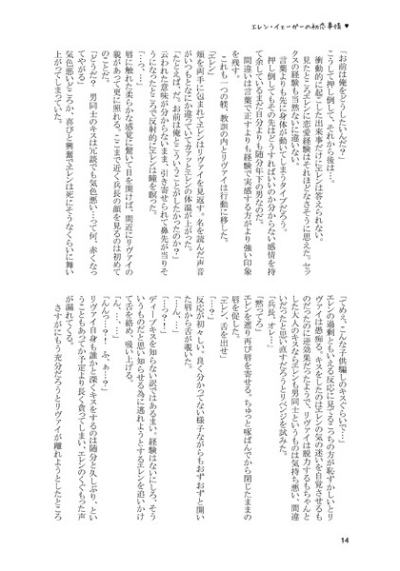 エレン・イェーガーの初恋事情 ♥
「お前は俺をどうしたいんだ？」
こうして押し倒して、それから後は…。
衝動的に起こした出来事だけにエレンは答えられない。
見たところエレンに恋愛経験はそれほどなさそうに思えた。セッ
クスの経験も当然ないに違いない。
言葉よりも先に身体が動いてしまうタイプだろう。
押し倒してもその先はどうすればいいのか分からない感情を持
て余しているまだ自分よりも随分年下の男なのだ。
間違いは言葉で正すよりも、経験で実感する方がより強い印象
を残す。
これも一つの躾、教訓の内とリヴァイは行動に移した。
「エレン」
頬を両手に包まれてエレンはリヴァイを見返す。名を読んだ声音
がいつもとなにか違っていてカァッとエレンの体温が上がった。
「たとえば、だ。お前は俺とこういうことがしたかったのか？」
云われた意味が分からないまま、引き寄せられて鼻先が当りそ
うになったところで反射的にエレンは瞳を瞑った。
「っ、…」
唇に触れた柔らかな感覚に驚いて目を開ければ、間近にリヴァイの
貌があって更に照れる。ここまで近くに兵長の顔を見るのは初めて
のことだ。
「どうだ？　男同士のキスは冗談でも気色悪い…って何、赤くなっ
てやがる」
気色悪いどころか、喜びと興奮でエレンは死にそうなくらいに舞い
上がってしまっていた。
「てめぇ、こんな子供騙しのキスぐらいで…」
エレンの過剰ともいえる反応に見てるこっちの方が恥ずかしいとリ
ヴァイは愚痴る。キスをしたのはエレンの気の迷いを自覚させるも
のだったのに逆効果だったようで、リヴァイは脱力するもちゃんと
した大人のキスならエレンも男同士というものは気持ち悪い、間違
いだったと思い直すだろうとリベンジを試みた。
「兵長、オレ…」
「黙ってろ」
エレンを遮り再び唇を寄せる。ちゅっと啄ばんでから閉じたままの
唇を促した。
「エレン、舌を出せ」
「…っ？！」
「―ん、…」
反応が初々しい、良く分かってない様子ながらもおずおずと開い
た唇から舌が覗いた。
ディープキスを知らない訳ではあるまい、経験はないにしろ、そう
いうものだと思い知らせる為に逃れようとするエレンを追いかけ
て舌を絡め、吸い上げる。
「ん、…、…」
「んんっ…？！　ふ、ぁ…？」
リヴァイ自身も誰かと深くキスをするのは随分と久しぶり、とい
うこともあってか予定より長く貪ってしまい、エレンのくぐもった声
が漏れてくる。
さすがにもう充分だろうとリヴァイが離れようとしたところ
14